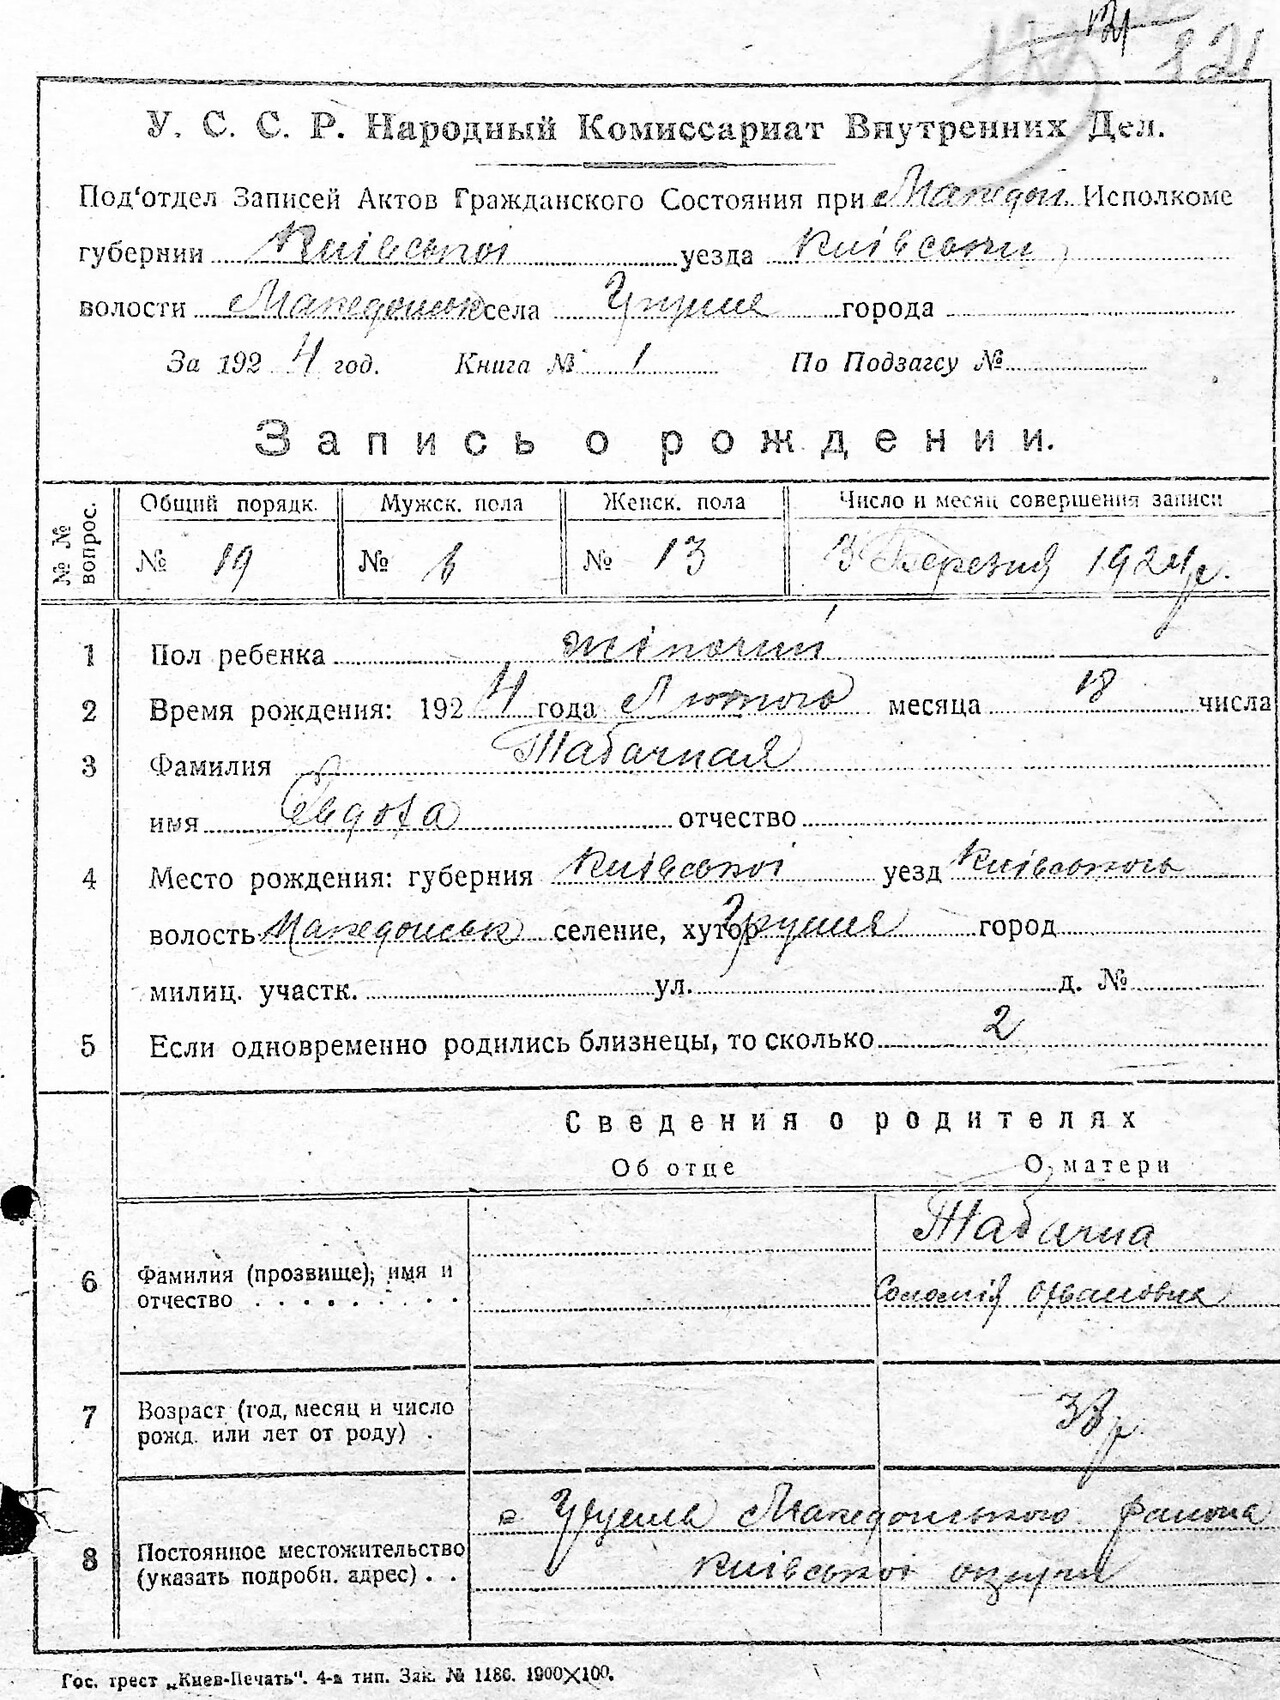 121
У. С. С. Р. Народный Комиссариат Внутренних Дел.
Под'отдел Записей Актов Гражданского Состояния при Македон. Исполкоме
губернии Київської уезда Київськи
волости Македонськ села Грушів города
За 1924 год. Книга № 1 По Подзагсу №
Запись о рождении.
№ № вопрос.
Общий порядк. Мужск. пола Женск. пола Число и месяц совершения записи
№ 19 № 6 № 13 3 Березня 1924 р.
1 Пол ребенка жіночий
2 Время рождения: 1924 года Лютого месяца 18 числа
3 Фамилия Табачная
имя Євдоха отчество
4 Место рождения: губерния Київської уезд Київського
волость Македонськ селение, хутор Грушів город
милиц. участк. ул. д. №
5 Если одновременно родились близнецы, то сколько 2
Сведения о родителях
Об отце О матери
Табачна
6 Фамилия (прозвище), имя и отчество Соломія
7 Возраст (год, месяц и число рожд. или лет от роду) 38 р.
с Македонського района
8 Постоянное местожительство (указать подробн. адрес) Київської округи
Гос. трест „Киев-Печать". 4-а тип. Зак. № 1186. 1900×100.